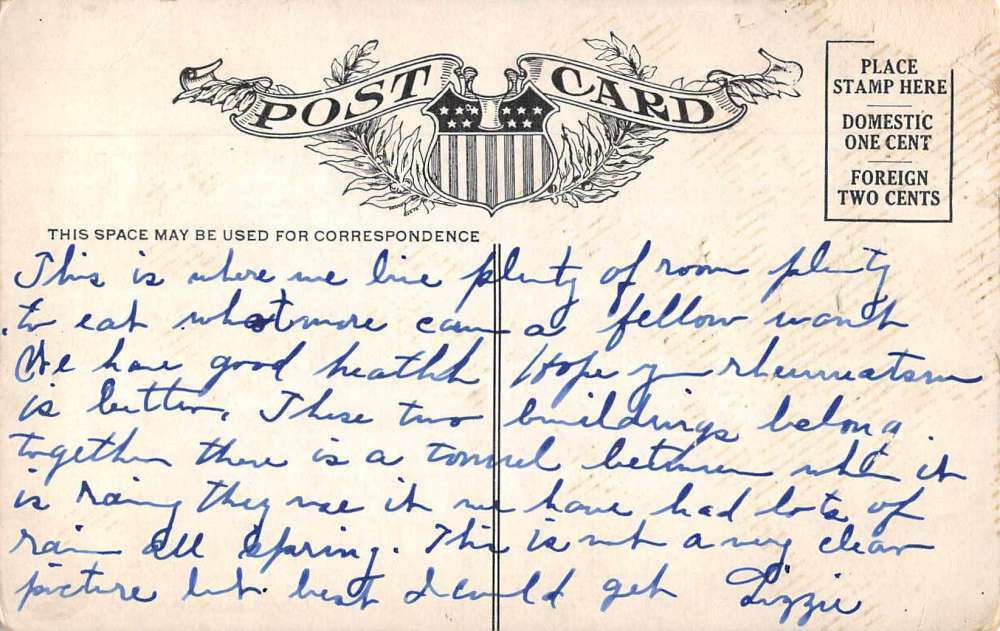 POST CARD
PLACE
STAMP HERE
DOMESTIC
ONE CENT
FOREIGN
TWO CENTS
THIS SPACE MAY BE USED FOR CORRESPONDENCE
This is where we live plenty of room plenty
to eat what more can a fellow want
We have good heathh Hope your rheumeatsm
is better. These two buildings belong
together there is a tonnel between when it
is raing they use it we have had lots of
rain all spring. This is not a very clear
picture but best I could get Lizzie